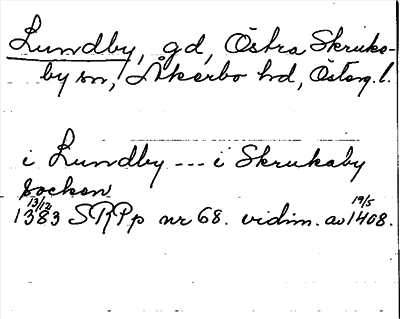 Lundby, gd, Östra Skruks-
by sn, Åkerbo hd, Österg.l.
i Lundby --- i Skrukaby
socken
13/12 19/5
1383 SRPp nr 68. vidim. av 1408.